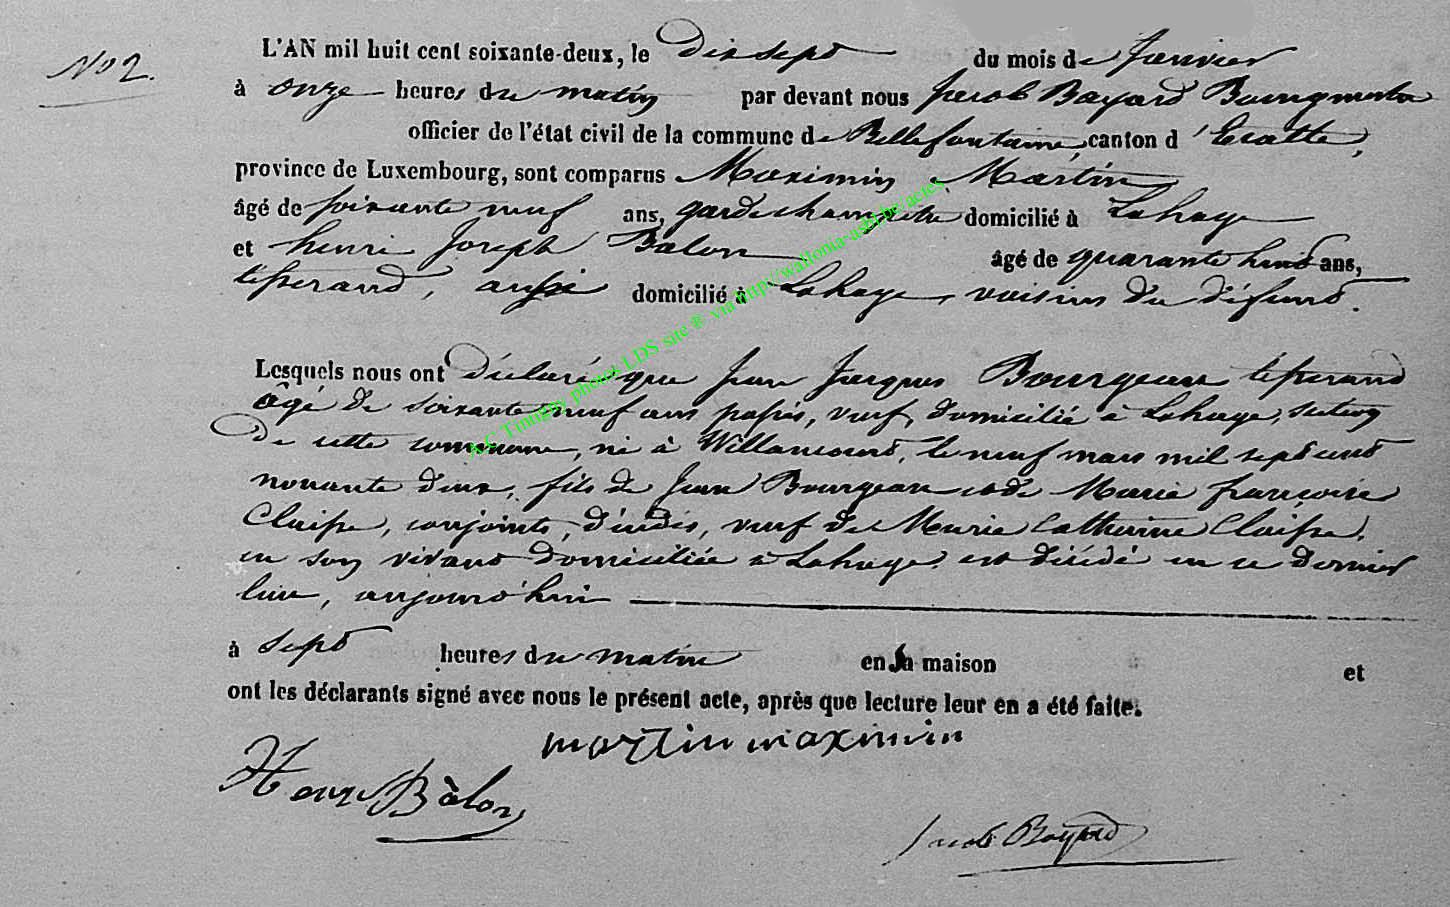 No 2.
L'AN mil huit cent soixante-deux, le dix sept du mois de Janvier
à onze heures du matin par devant nous Jacob Bayard Bourgmestre
officier de l'état civil de la commune de Bellefontaine, canton d'Etalle,
province de Luxembourg, sont comparus Maximin Martin
âgé de soixante neuf ans, garde champetre domicilié à Lahage
et henri Joseph Balon âgé de quarante huit ans,
tisserand, aussi domicilié à Lahage, voisins du défunt.
Lesquels nous ont déclaré que Jean Jacques Bourgeau tisserand
âgé de soixante neuf ans passés, veuf, domicilié à Lahage, section
de cette commune, né à Willancourt, le neuf mars mil sept cent
nonante deux, fils de Jean Bourgeau et de Marie françoise
Claisse, conjoints, décédés, veuf de Marie Catherine Claisse,
en son vivant domiciliée à Lahage, est décédé en ce dernier
lieu, aujourd'hui
à sept heures du matin en sa maison et
ont les déclarants signé avec nous le présent acte, après que lecture leur en a été faite.
martin maximin
Henri Balon
Jacob Bayard
A.C Tintigny photos LDS site ® via http://wallonia-asbl.be/actes